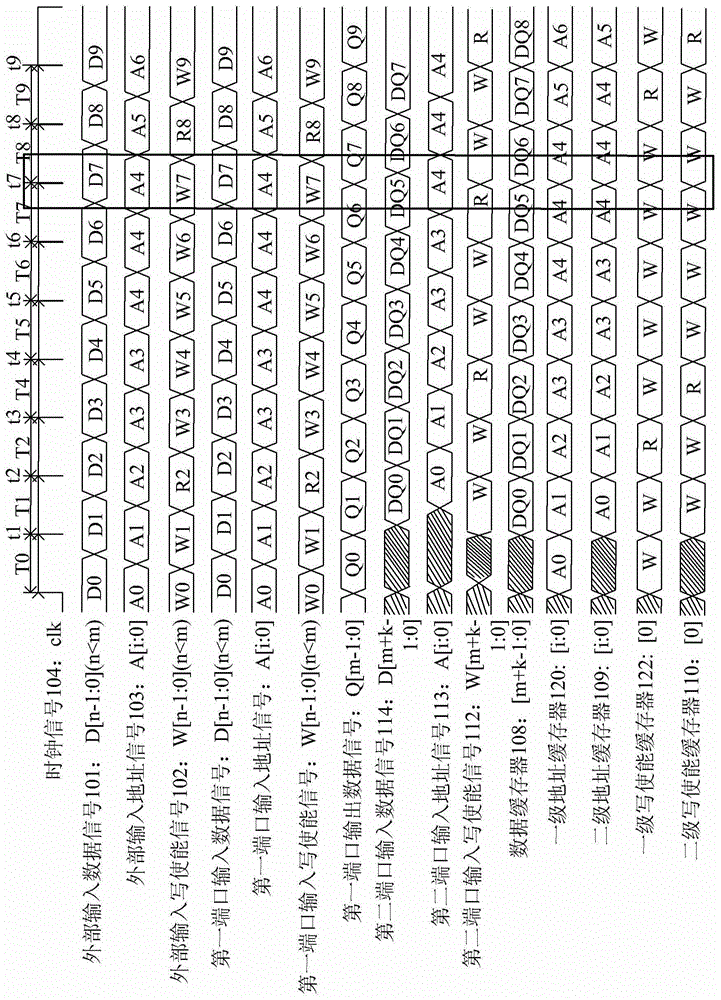 T0 t1 T1 t2 T2 t3 T4 t4 T5 t5 T6 t6 T7 t7 T8 t8 T9 t9
时钟信号104：clk
外部输入数据信号101：D[n-1:0](n<m) D0 D1 D2 D3 D4 D5 D6 D7 D8 D9
外部输入地址信号103：A[i:0] A0 A1 A2 A3 A3 A4 A4 A4 A5 A6
外部输入写使能信号102：W[n-1:0](n<m) W0 W1 R2 W3 W4 W5 W6 W7 R8 W9
第一端口输入数据信号：D[n-1:0](n<m) D0 D1 D2 D3 D4 D5 D6 D7 D8 D9
第一端口输入地址信号：A[i:0] A0 A1 A2 A3 A3 A4 A4 A4 A5 A6
第一端口输入写使能信号：W[n-1:0](n<m) W0 W1 R2 W3 W4 W5 W6 W7 R8 W9
第一端口输出数据信号：Q[m-1:0] Q0 Q1 Q2 Q3 Q4 Q5 Q6 Q7 Q8 Q9
第二端口输入数据信号114：D[m+k-
1:0] DQ0 DQ1 DQ2 DQ3 DQ4 DQ5 DQ6 DQ7
第二端口输入地址信号113：A[i:0] A0 A1 A2 A3 A3 A4 A4 A4
第二端口输入写使能信号112：W[m+k-
1:0] W W R W W R W W R
数据缓存器108：[m+k-1:0] DQ0 DQ1 DQ2 DQ3 DQ4 DQ5 DQ6 DQ7 DQ8
一级地址缓存器120：[i:0] A0 A1 A2 A3 A3 A4 A4 A4 A5 A6
二级地址缓存器109：[i:0] A0 A1 A2 A3 A3 A4 A4 A4 A5
一级写使能缓存器122：[0] W W R W W W W W R W
二级写使能缓存器110：[0] W W R W W W W W R